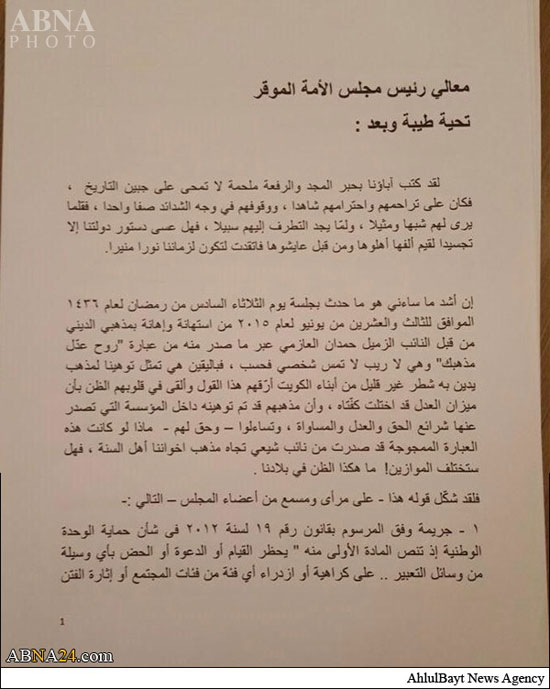 ABNA
PHOTO
معالي رئيس مجلس الأمة الموقر
تحية طيبة وبعد :
لقد كتب أباؤنا بحبر المجد والرفعة ملحمة لا تمحى على جبين التاريخ ،
فكان على تراحمهم واحترامهم شاهدا ، ووقوفهم في وجه الشدائد صفا واحدا ، فقلما
يرى لهم شبها ومثيلا ، ولمّا يجد التطرف إليهم سبيلا ، فهل عسى دستور دولتنا إلا
تجسيدا لقيم ألفها أهلوها ومن قبل عايشوها فاتقدت لتكون لزماننا نورا منيرا.
إن أشد ما ساءني هو ما حدث بجلسة يوم الثلاثاء السادس من رمضان لعام ١٤٣٦
الموافق للثالث والعشرين من يونيو لعام ٢٠١٥ من استهانة وإهانة بمذهبي الديني
من قبل النائب الزميل حمدان العازمي عبر ما صدر منه من عبارة "روح عدّل
مذهبك" وهي لا ريب لا تمس شخصي فحسب ، فباليقين هي تمثل توهينا لمذهب
يدين به شطر غير قليل من أبناء الكويت أرّقهم هذا القول وألقى في قلوبهم الظن بأن
ميزان العدل قد اختلت كفّتاه ، وأن مذهبهم قد تم توهينه داخل المؤسسة التي تصدر
عنها شرائع الحق والعدل والمساواة ، وتساءلوا – وحق لهم - ماذا لو كانت هذه
العبارة الممجوجة قد صدرت من نائب شيعي تجاه مذهب اخواننا أهل السنة ، فهل
ستختلف الموازين! ما هكذا الظن في بلادنا .
فلقد شكّل قوله هذا - على مرأى ومسمع من أعضاء المجلس – التالي :-
١ - جريمة وفق المرسوم بقانون رقم ١٩ لسنة ٢٠١٢ فى شأن حماية الوحدة
الوطنية إذ تنص المادة الأولى منه " يحظر القيام أو الدعوة أو الحض بأي وسيلة
من وسائل التعبير .. على كراهية أو ازدراء أي فئة من فئات المجتمع أو إثارة الفتن
1
ABNA24.com
AhlulBayt News Agency